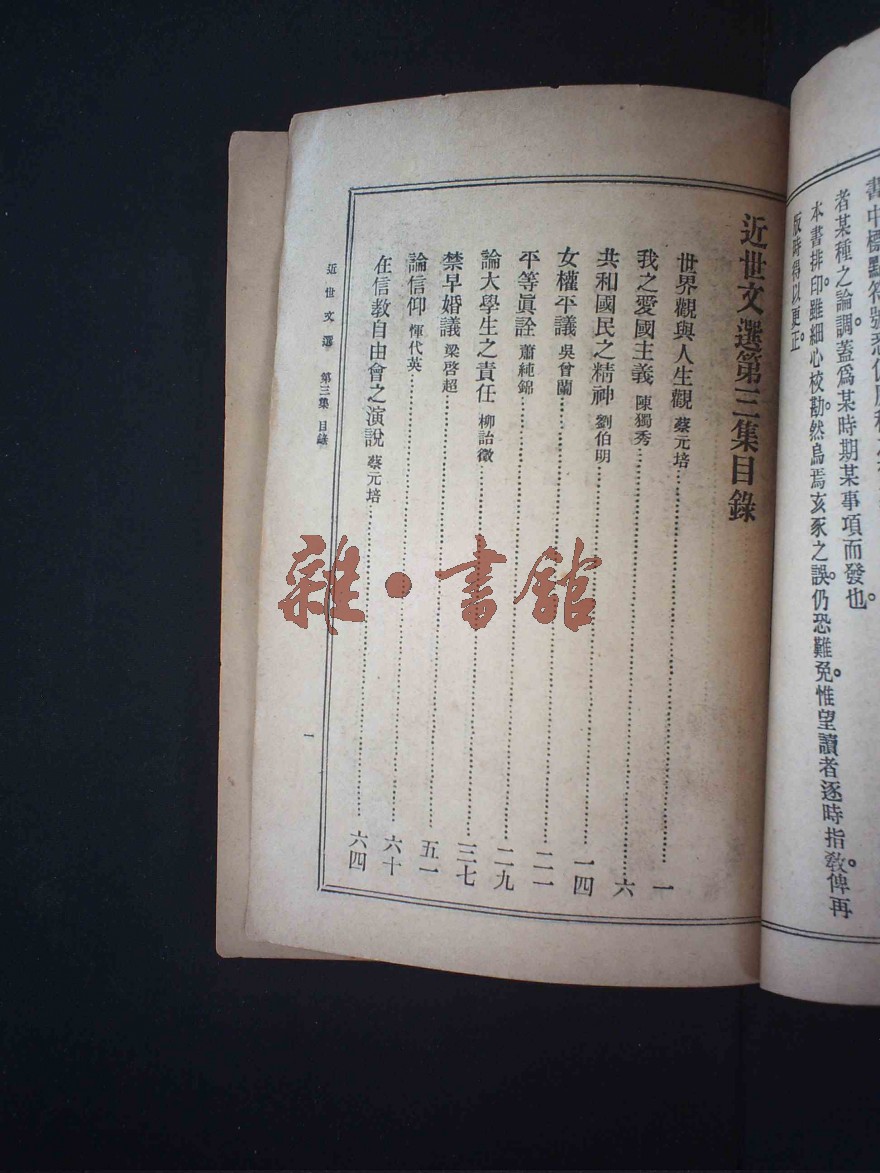 書中標點符號悉仍
者某種之論調蓋爲某時期某事項而發也。
本書排印雖細心校勘。然烏焉亥豕之誤。仍恐難免。惟望讀者逐時指敎。俾再
版時得以更正。
近世文選第三集目錄
世界觀與人生觀 蔡元培……一
我之愛國主義 陳獨秀……六
共和國民之精神 劉伯明……一四
女權平議 吳曾蘭……二一
平等眞詮 蕭純錦……二九
論大學生之責任 柳詒徵……三七
禁早婚議 梁啓超……五一
論信仰 惲代英……六十
在信教自由會之演說 蔡元培……六四
近世文選 第三集 目錄
一
雜·書館